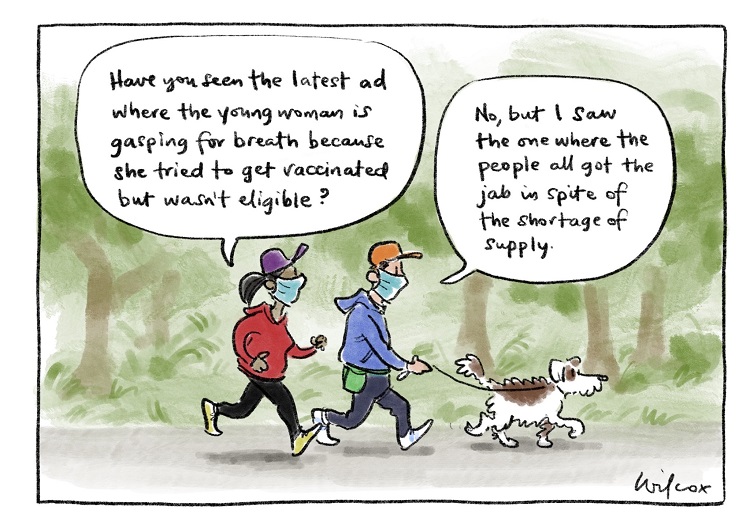 Have you seen the latest ad
where the young woman is
gasping for breath because
she tried to get vaccinated
but wasn't eligible?
No, but I saw
the one where the
people all got the
jab in spite of
the shortage of
supply.
Wilcox